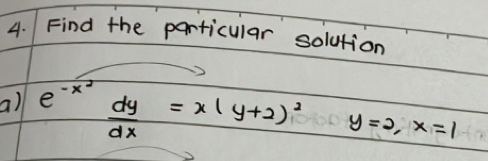 4. Find the particular solution
a) e^{-x^2} dy/dx = x(y+2)^2 y=2, x=1